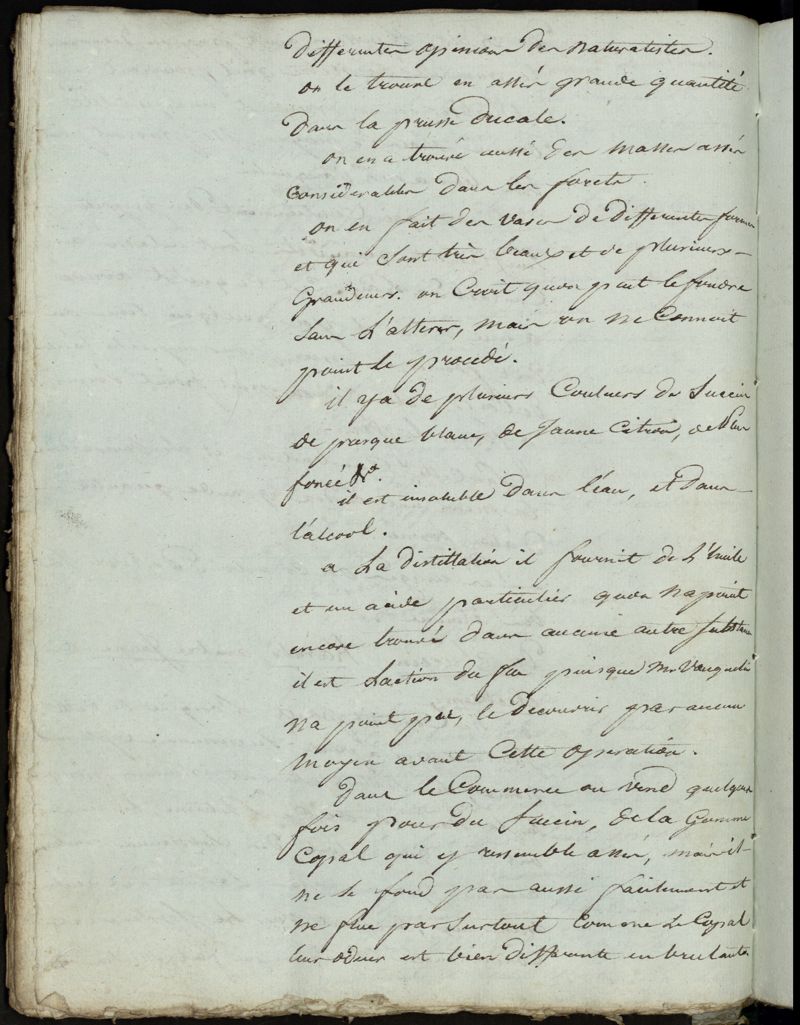 differentes opinions des naturalistes.
on le trouve en assés grande quantité
dans la prusse Ducale.
on en a trouvé aussi des masses assés
considerables dans les forets.
on en fait des vases de differentes formes
et qui sont très beaux et de plusieurs
Grandeurs. on Croit quon peut le fondre
sans L'alterer, mais on ne Connoit
point le procedé.
il y a de plusieurs Couleurs du Succin
de presque blanc, de Jaune Citron, de
foncé &ca.
il est insoluble dans l'eau, et dans
l'alcool.
a La distillation il fournit de L'huile
et un acide particulier quon na point
encore trouvé dans aucune autre substance
il est L'action du feu puisque Mr Vauquelin
na point pu, le Decouvrir par aucun
moyen avant Cette operation.
Dans le Commerce on vend quelques
fois pour du succin, de la Gomme
Copal qui y ressemble assés, mais il
ne se fond pas aussi facilement et
ne flue pas surtout comme le Copal
leur odeur est bien differente en brulants